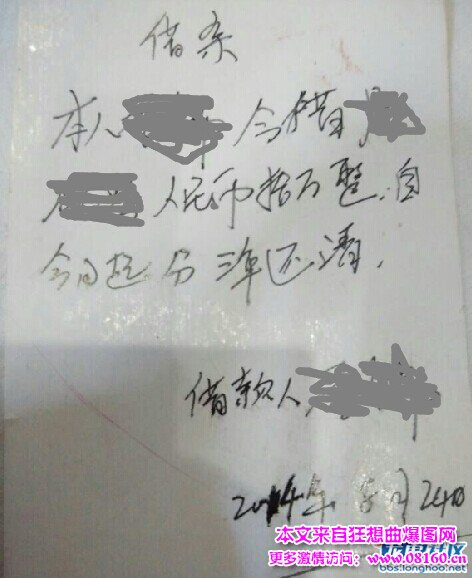 借条
本人 今借
人民币拾万整，自
今日起分三年还清，
借款人
2014年8月24日
本文来自狂想曲爆图网
更多激情访问：www.08160.cn
bbs.longhoo.net